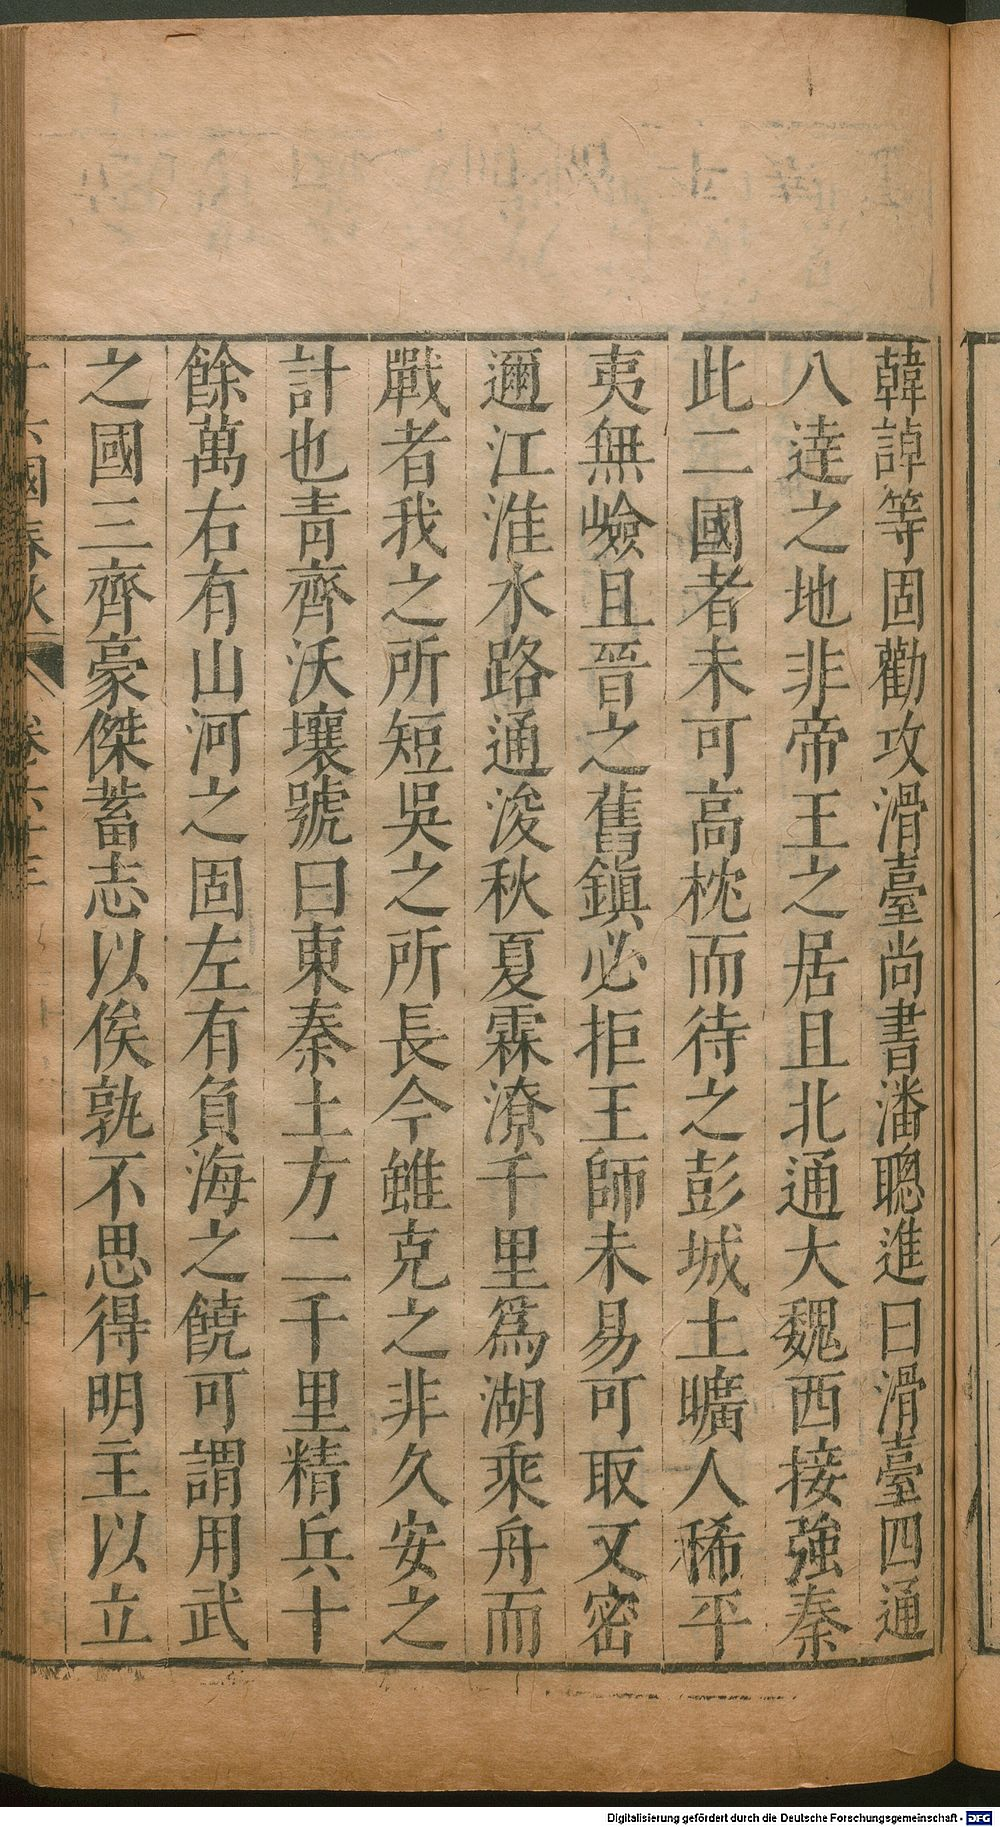 韓𧨳等固勸攻滑臺尚書潘聰進曰滑臺四通
八達之地非帝王之居且北通大魏西接強秦
此二國者未可高枕而待之彭城土曠人稀平
夷無嶮且晉之舊鎮必拒王師未易可取又密
邇江淮水路通浚秋夏霖潦千里爲湖乘舟而
戰者我之所短吳之所長今雖克之非久安之
計也青齊沃壤號曰東秦土方二千里精兵十
餘萬右有山河之固左有負海之饒可謂用武
之國三齊豪傑蓄志以俟孰不思得明主以立
十六國春秋 卷六十三
Digitalisierung gefördert durch die Deutsche Forschungsgemeinschaft - DFG